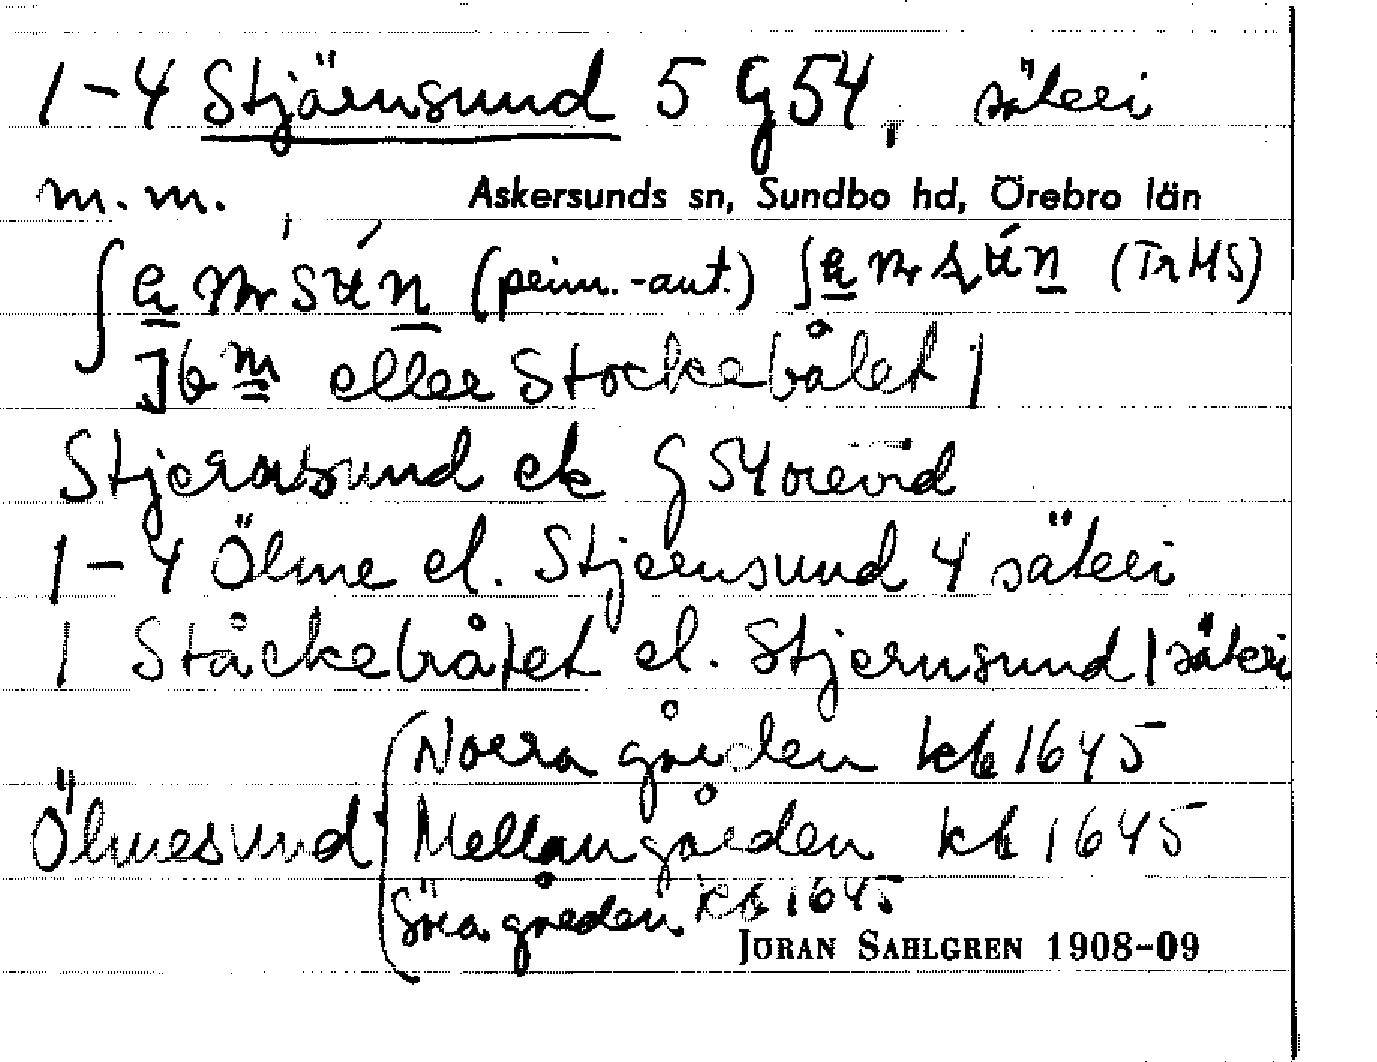 1-4 Stjärnsund 5 G54, säteri
m.m. Askersunds sn, Sundbo hd, Örebro län
(prim.-aut.) (Tr HS)
eller Stockebålet 1
Stjernsund ek G 54
1-4 Ölme el. Stjernsund 4 säteri
1 Ståckebålet el. Stjernsund 1 säteri
Norra gården kb 1645
Ölmesund Mellangården kb 1645
Söra gården kb 1645
JÖRAN SAHLGREN 1908-09